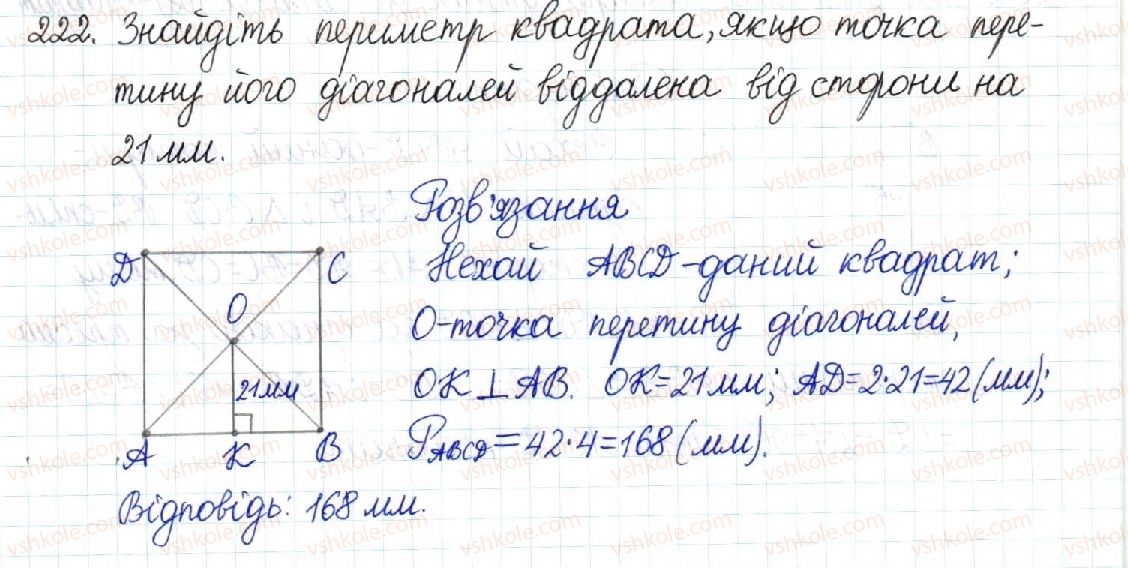 222. Знайдіть периметр квадрата, якщо точка пере-
тину його діагоналей віддалена від сторони на
21 мм.
Розв'язання
D C
Нехай ABCD - даний квадрат;
O
O - точка перетину діагоналей,
21 мм
OK ⊥ AB. OK = 21 мм; AD = 2·21 = 42 (мм);
A K B
P_ABCD = 42·4 = 168 (мм).
Відповідь: 168 мм.
vshkole.com